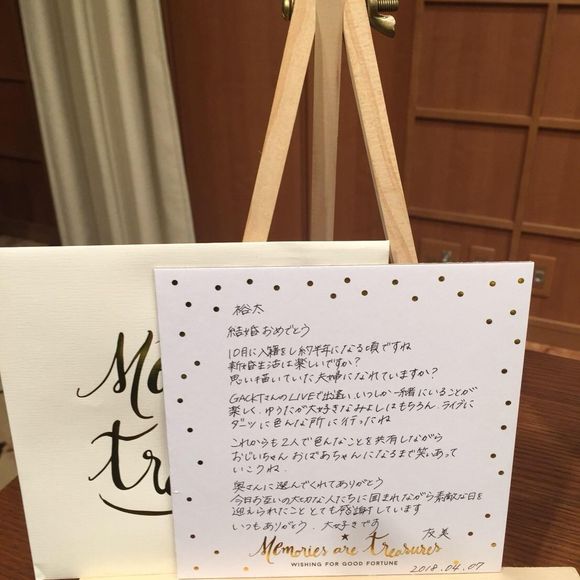 Me
tr
裕太
結婚おめでとう
10月に入籍をし約半年になる頃ですね
新婚生活は楽しいですか?
思い描いていた夫婦になれていますか?
GACKTさんのLIVEで出逢い、いつしか一緒にいることが
楽しく、ゆうたが大好きなみよしはもちろん、ライブに
ダーツに色んな所に行ったね
これからも2人で色んなことを共有しながら
おじいちゃん、おばあちゃんになるまで笑いあって
いこうね。
奥さんに選んでくれてありがとう
今日お互いの大切な人たちに囲まれながら素敵な日を
迎えられたこととても感謝しています
いつもありがとう、大好きです
友美
Memories are treasures
WISHING FOR GOOD FORTUNE
2018.04.07